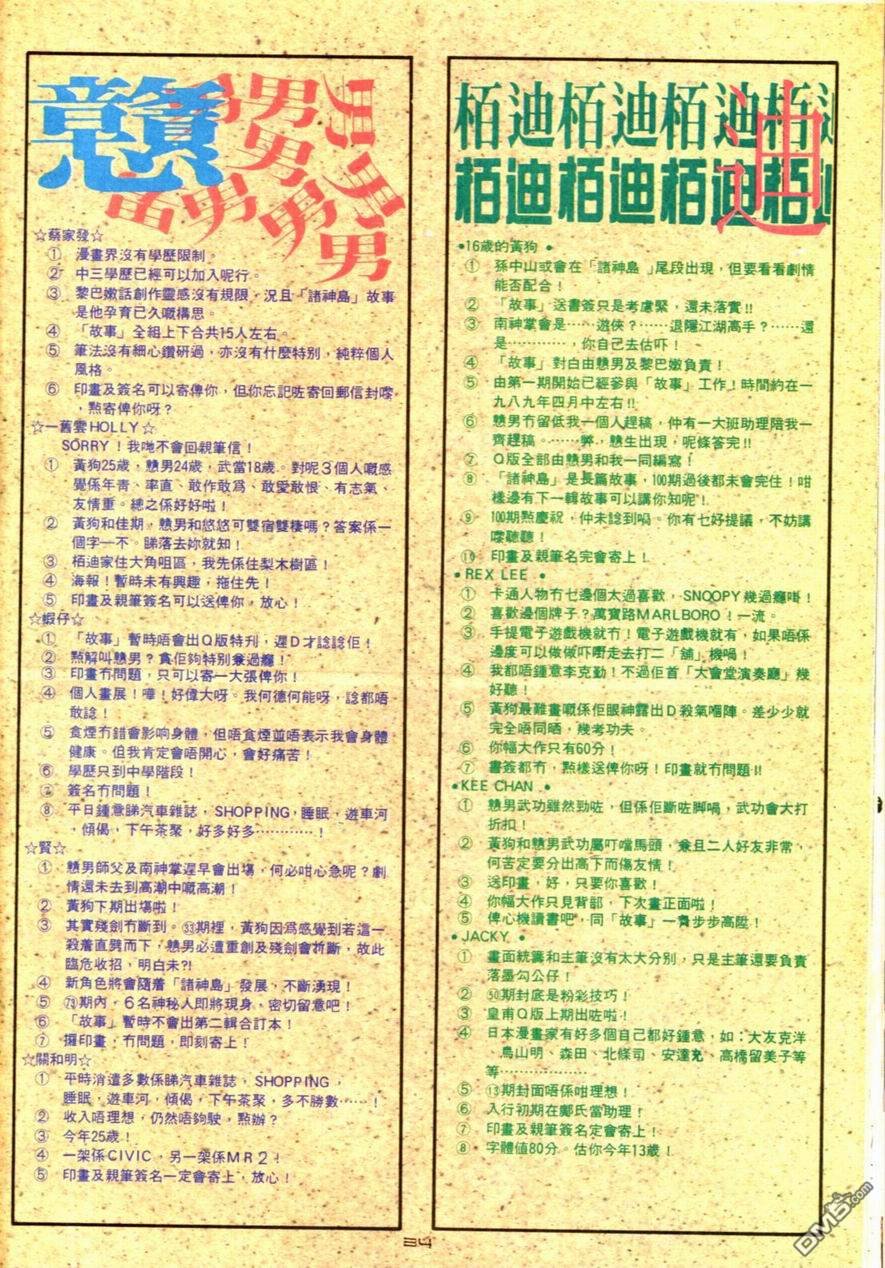 戇男男男男男男男男男
☆蔡家發☆
① 漫畫界沒有學歷限制。
② 中三學歷已經可以加入呢行。
③ 黎巴嫩話創作靈感沒有規限,況且「諸神島」故事
是他孕育已久嘅構思。
④ 「故事」全組上下合共15人左右。
⑤ 筆法沒有細心鑽研過,亦沒有什麼特別,純粹個人
風格。
⑥ 印畫及簽名可以寄俾你,但你忘記咗寄回郵信封嚟
,點寄俾你呀?
☆一舊雲HOLLY☆
SORRY!我哋不會回親筆信!
① 黃狗25歲,戇男24歲,武當18歲。對呢3個人嘅感
覺係年青、率直、敢作敢為、敢愛敢恨、有志氣、
友情重。總之係好好啦!
② 黃狗和佳期,戇男和悠悠可雙宿雙棲嗎?答案係一
個字—不。睇落去妳就知!
③ 栢迪家住大角咀區,我先係住梨木樹區!
④ 海報!暫時未有興趣,拖住先!
⑤ 印畫及親筆簽名可以送俾你,放心!
☆蝦仔☆
① 「故事」暫時唔會出Q版特刊,遲D才諗諗佢!
② 點解叫戇男?貪佢夠特別兼過癮!
③ 印畫冇問題,只可以寄一大張俾你!
④ 個人畫展!嘩!好偉大呀。我何德何能呀,諗都唔
敢諗!
⑤ 食煙冇錯會影响身體,但唔食煙並唔表示我會身體
健康。但我肯定會唔開心,會好痛苦!
⑥ 學歷只到中學階段!
⑦ 簽名冇問題!
⑧ 平日鍾意睇汽車雜誌,SHOPPING,睡眠,遊車河
,傾偈,下午茶聚,好多好多…………!
☆賢☆
① 戇男師父及南神掌遲早會出場,何必咁心急呢?劇
情還未去到高潮中嘅高潮!
② 黃狗下期出場啦!
③ 其實殘劍冇斷到。㉝期裡,黃狗因為感覺到若這一
殺着直劈而下,戇男必遭重創及殘劍會折斷,故此
臨危收招,明白未?!
④ 新角色將會隨着「諸神島」發展,不斷湧現!
⑤ 期內,6名神秘人即將現身,密切留意吧!
⑥ 「故事」暫時不會出第二輯合訂本!
⑦ 攞印畫,冇問題,即刻寄上!
☆關和明☆
① 平時消遣多數係睇汽車雜誌,SHOPPING,
睡眠,遊車河,傾偈,下午茶聚,多不勝數……!
② 收入唔理想,仍然唔夠駛,點辦?
③ 今年25歲!
④ 一架係CIVIC,另一架係MR2!
⑤ 印畫及親筆簽名一定會寄上,放心!
栢迪栢迪栢迪栢迪
栢迪栢迪栢迪栢迪
迪
•16歲的黃狗•
① 孫中山或會在「諸神島」尾段出現,但要看看劇情
能否配合!
② 「故事」送書簽只是考慮緊,還未落實!!
③ 南神掌會是……遊俠?……退隱江湖高手?……還
是…………,你自己去估吓!
④ 「故事」對白由戇男及黎巴嫩負責!
⑤ 由第一期開始已經參與「故事」工作!時間約在一
九八九年四月中左右!!
⑥ 戇男冇留低我一個人趕稿,仲有一大班助理陪我一
齊趕稿。……弊,戇生出現,呢條答完!!
⑦ Q版全部由戇男和我一同編寫!
⑧ 「諸神島」是長篇故事,100期過後都未會完住!咁
樣邊有下一輯故事可以講你知呢!
⑨ 100期點慶祝,仲未諗到喎。你有乜好提議,不妨講
嚟聽聽!
⑩ 印畫及親筆名完會寄上!
•REX LEE•
① 卡通人物冇乜邊個太過喜歡,SNOOPY幾過癮啩!
② 喜歡邊個牌子?萬寶路MARLBORO!一流。
③ 手提電子遊戲機就冇!電子遊戲機就有,如果唔係
邊度可以做做吓嘢走去打二「舖」機喎!
④ 我都唔鍾意李克勤!不過佢首「大會堂演奏廳」幾
好聽!
⑤ 黃狗最難畫嘅係佢眼神露出D殺氣嗰陣。差少少就
完全唔同晒,幾考功夫。
⑥ 你幅大作只有60分!
⑦ 書簽都冇,點樣送俾你呀!印畫就冇問題!!
•KEE CHAN•
① 戇男武功雖然勁咗,但係佢斷咗脚喎,武功會大打
折扣!
② 黃狗和戇男武功屬叮噹馬頭,兼且二人好友非常,
何苦定要分出高下而傷友情!
③ 送印畫,好,只要你喜歡!
④ 你幅大作只見背部,下次畫正面啦!
⑤ 俾心機讀書吧,同「故事」一齊步步高陞!
•JACKY•
① 畫面統籌和主筆沒有太大分別,只是主筆還要負責
落墨勾公仔!
② ㊿期封底是粉彩技巧!
③ 皇甫Q版上期出咗啦!
④ 日本漫畫家有好多個自己都好鍾意,如:大友克洋
、鳥山明、森田、北條司、安達充、高橋留美子等
等………………
⑤ ⑬期封面唔係咁理想!
⑥ 入行初期在鄺氏當助理!
⑦ 印畫及親筆簽名定會寄上!
⑧ 字體值80分。估你今年13歲!
34
DM5.com